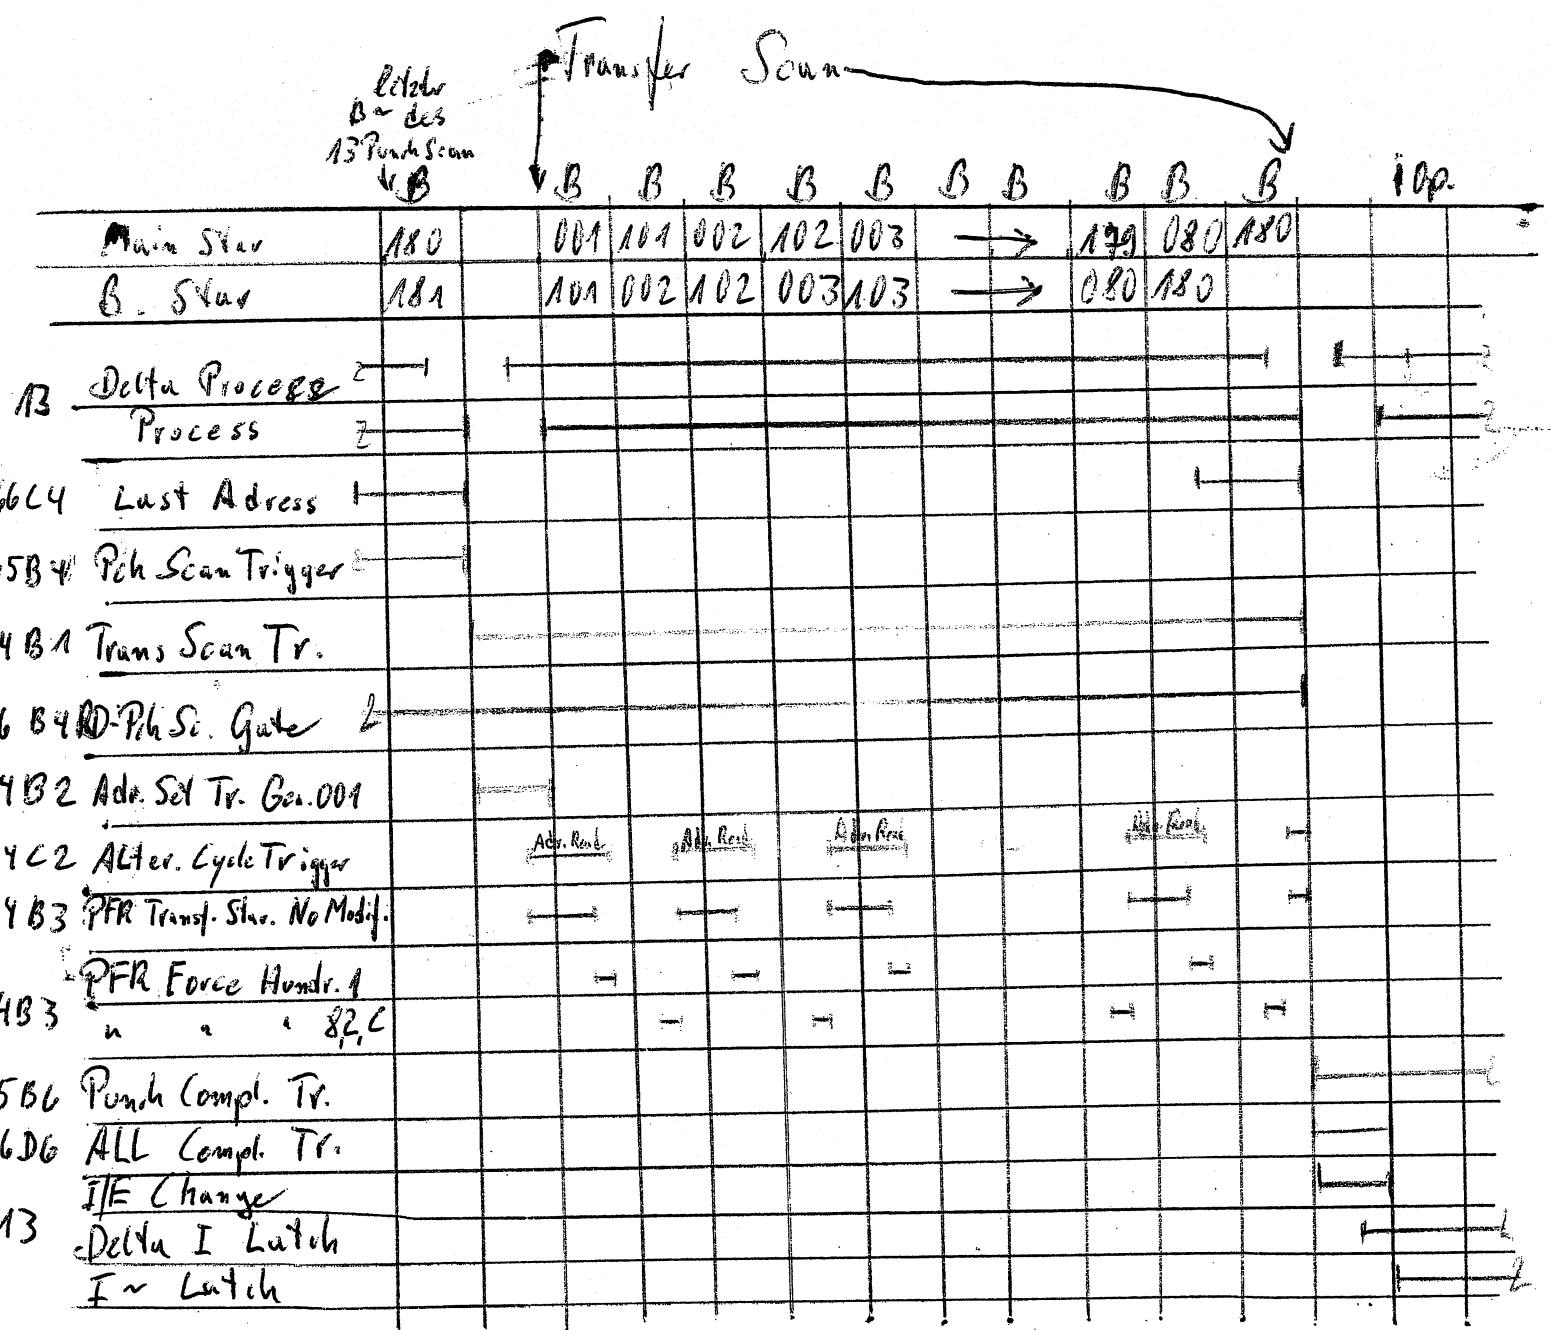 Transfer Scan
letzter
B~ des
13 Punch Scan
B B B B B B B B B B B I Op.
Main Star 180 001 101 002 102 003 → 179 080 180
B. Star 181 101 002 102 003 103 → 080 180
13 Delta Process
Process
66C4 Last Adress
5B4 Pch Scan Trigger
4B1 Trans Scan Tr.
6B4 RD-Pch Sc. Gate
4B2 Adr. Set Tr. Gen. 001
4C2 ALter. Cycle Trigger Adr. Read. Adr. Read Adr. Read Adr. Read.
4B3 PFR Transf. Star. No Modif.
PFR Force Hundr. 1
4B3 " " " 8,2,C
5B6 Punch Compl. Tr.
6D6 ALL Compl. Tr.
I/E Change
13 Delta I Latch
I ~ Latch